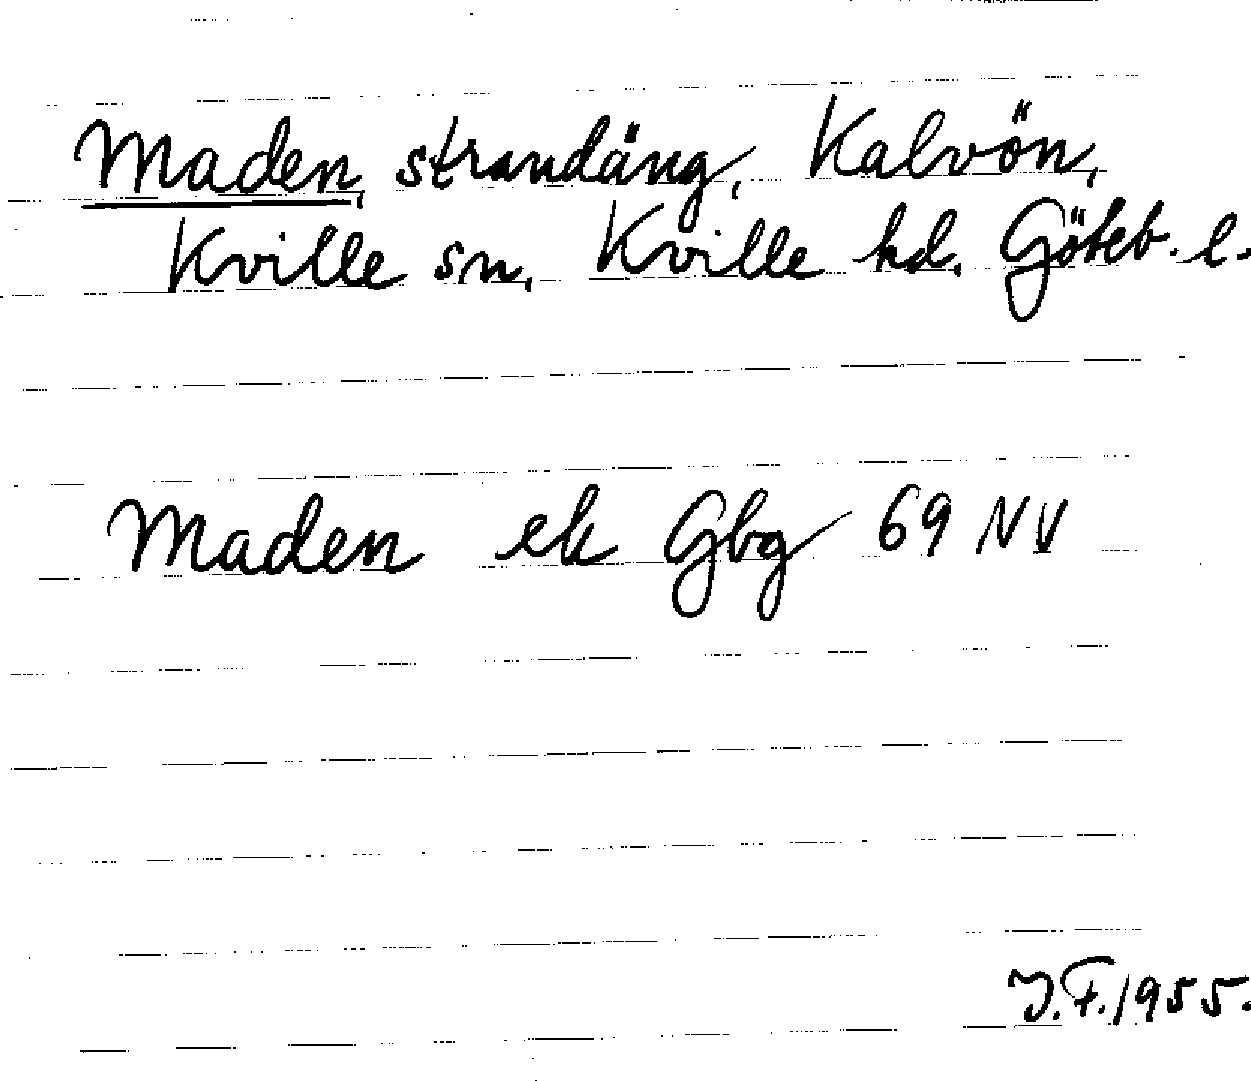 Maden, strandäng, Kalvön,
Kville sn, Kville hd. Göteb. l.
Maden ek Gbg 69 NV
J.F. 1955.